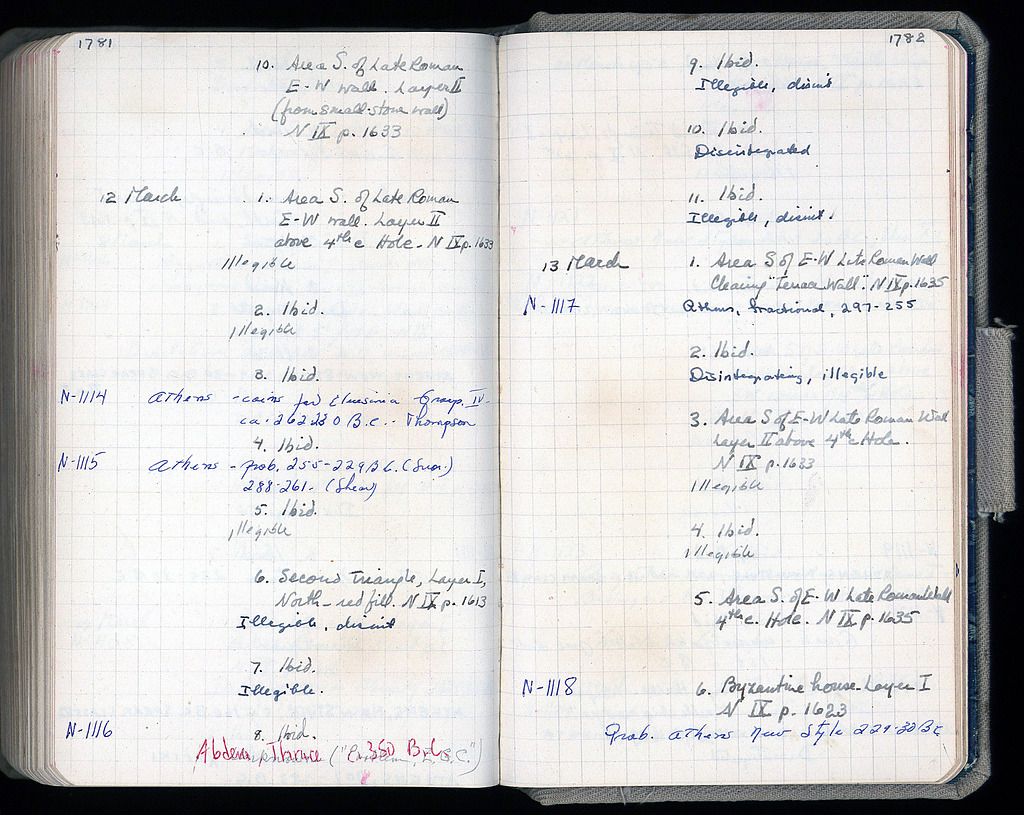 1781
10. Area S. of Late Roman
E-W wall. Layer II
(from small-stone wall)
N IX p. 1633
12 March 1. Area S. of Late Roman
E-W wall. Layer II
above 4th c Hole. N IX p. 1633
Illegible
2. Ibid.
illegible
3. Ibid.
N-1114 Athens - coins for Eleusinia Group IV-
ca. 262-230 B.C. - Thompson
4. Ibid.
N-1115 Athens - prob. 255-229 B.C.
288-261. (Shear)
5. Ibid.
illegible
6. Second Triangle, Layer I,
North - red fill. N IX p. 1613
Illegible, disint
7. Ibid.
Illegible.
N-1116 8. Ibid.
Abdera, Thrace 350 B.C.
1782
9. Ibid.
Illegible, disint
10. Ibid.
Disintegrated
11. Ibid.
Illegible, disint.
13 March 1. Area S of E-W Late Roman Wall
Clearing "Terrace Wall." N IX p. 1635
N-1117 Athens, fractional, 297-255
2. Ibid.
Disintegrating, illegible
3. Area S of E-W Late Roman Wall
Layer II above 4th c Hole.
N IX p. 1633
Illegible
4. Ibid.
illegible
5. Area S. of E-W Late Roman Wall
4th c. Hole. N IX p. 1635
N-1118 6. Byzantine house. Layer I
N IX p. 1623
Prob. Athens New Style 229-30 BC